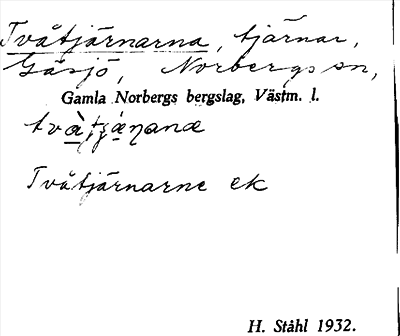 Tvåtjärnarna, tjärnar,
Gäsjö, Norbergs sn,
Gamla Norbergs bergslag, Västm. l.
Tvåtjärnarne ek
H. Ståhl 1932.